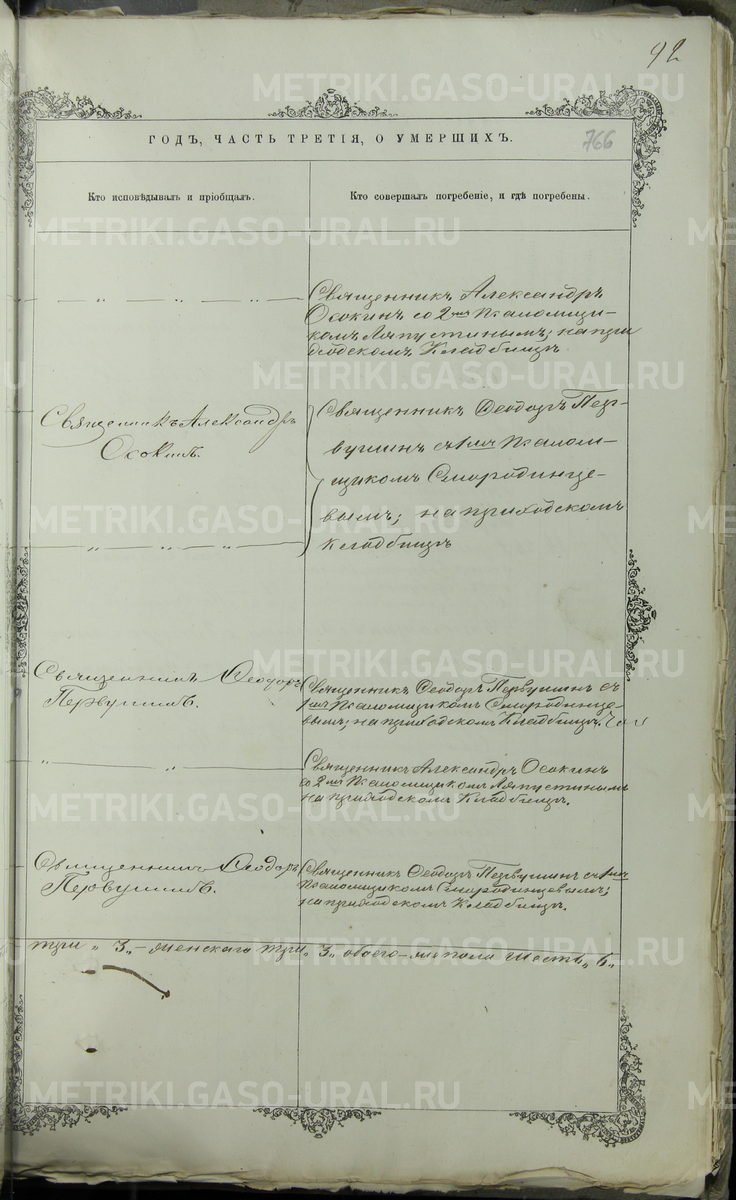 92
ГОДЪ, ЧАСТЬ ТРЕТІЯ, О УМЕРШИХЪ.
766
Кто исповѣдывалъ и пріобщалъ.
Кто совершалъ погребеніе, и гдѣ погребены.
— „ — „ — „ —
Священникъ Александръ
Осокинъ со 2мъ Псаломщи-
комъ Ляпустинымъ; на при
ходскомъ Кладбищѣ
Священникъ Александръ
Осокинъ.
Священникъ Ѳеодоръ Пер-
вушинъ съ 1мъ Псалом-
щикомъ Смородинце-
вымъ; на приходскомъ
Кладбищѣ
— „ — „ — „ —
Священникъ Ѳеодоръ
Первушинъ.
Священникъ Ѳеодоръ Первушинъ съ
1мъ Псаломщикомъ Смородинце-
вымъ; на приходскомъ Кладбищѣ.
„ — „ —
Священникъ Александръ Осокинъ
со 2мъ Псаломщикомъ Ляпустинымъ
на приходскомъ Кладбищѣ.
Священникъ Ѳеодоръ
Первушинъ.
Священникъ Ѳеодоръ Первушинъ съ 1мъ
Псаломщикомъ Смородинцевымъ;
на приходскомъ Кладбищѣ.
три „ 3„ — женскаго три „ 3„ обоего — пола шесть „ 6„
METRIKI.GASO-URAL.RU